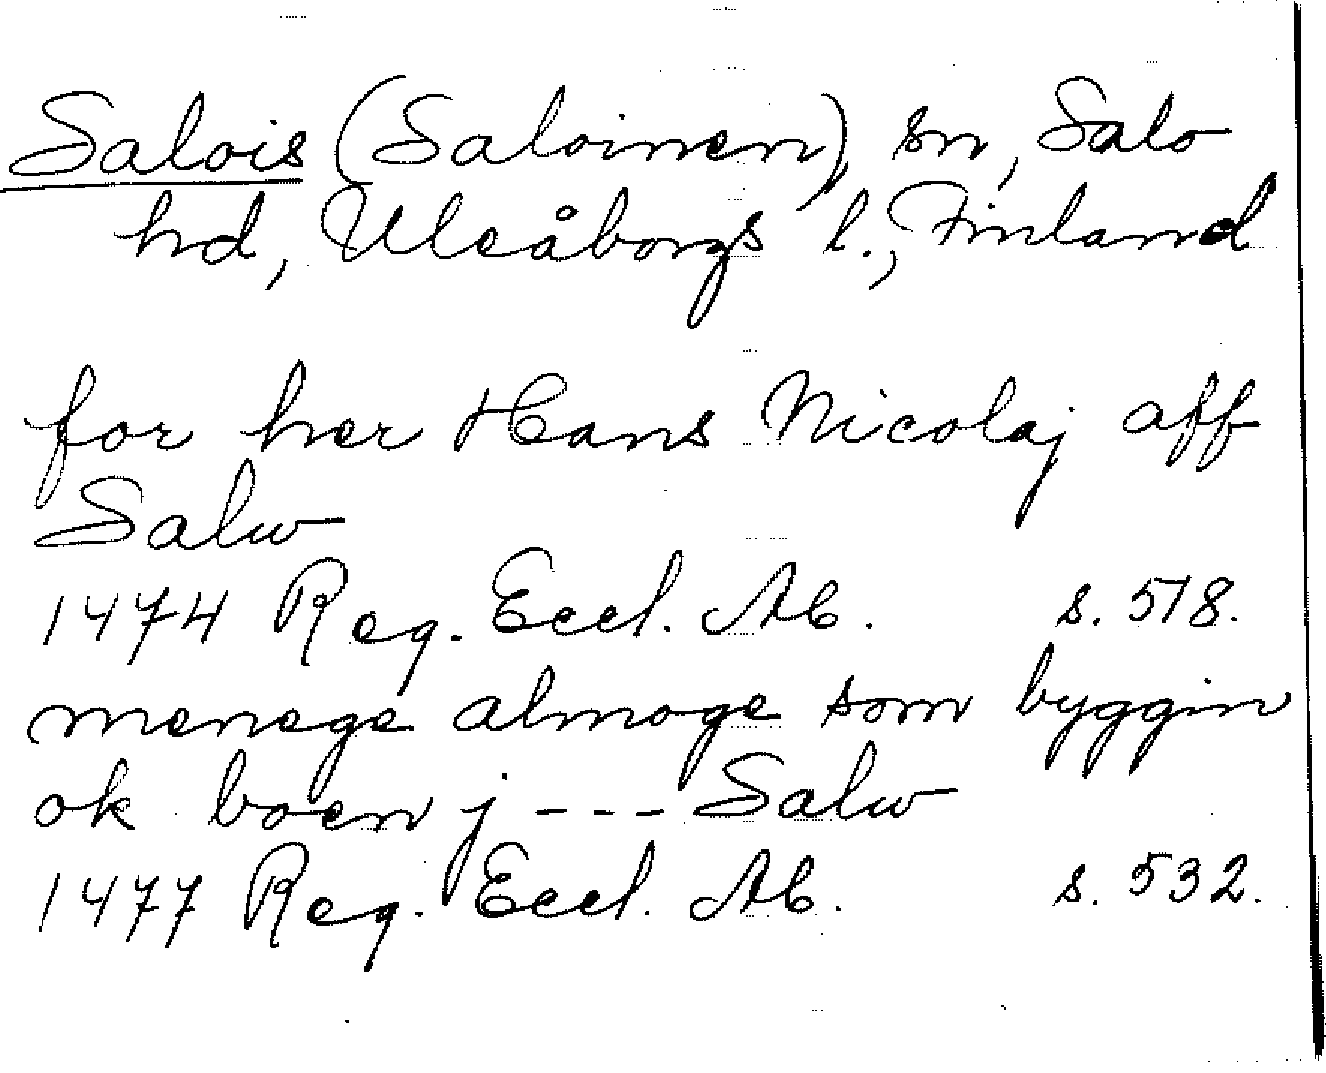 Salois (Saloinen), sn, Salo
hd, Uleåborgs l., Finland
for her Hans Nicolaj aff
Salw
1474 Reg. Eccl. Ab. s. 518.
menege almoge som byggin
ok boen j --- Salw
1477 Reg. Eccl. Ab. s. 532.